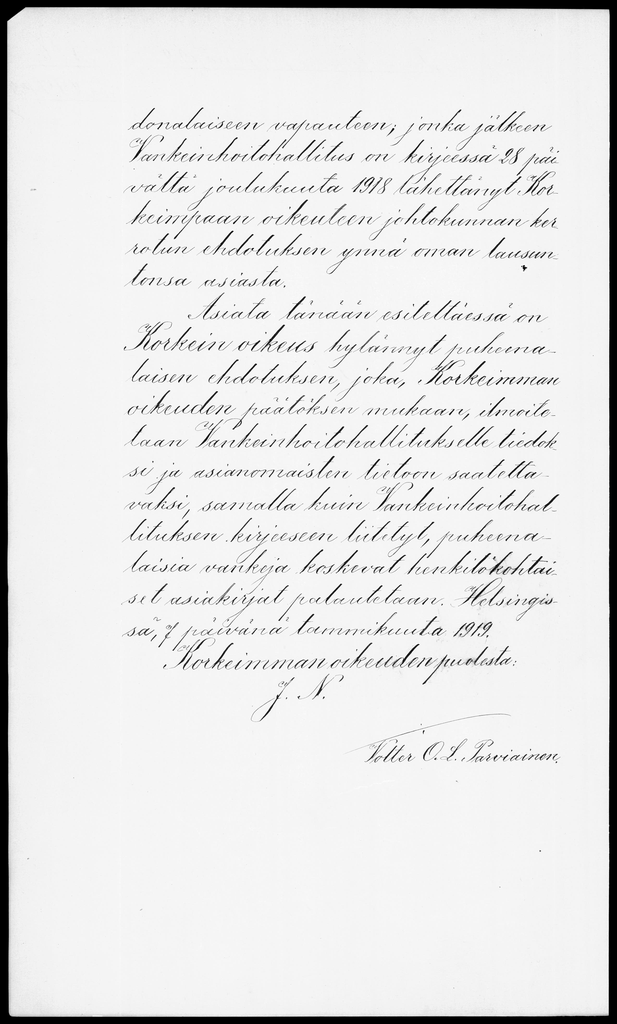 donalaiseen vapauteen; jonka jälkeen
Vankeinhoitohallitus on kirjeessä 28 päi
vältä joulukuuta 1918 lähettänyt Kor-
keimpaan oikeuteen johtokunnan ker
rotun ehdotuksen ynnä oman lausun-
tonsa asiasta.
Asiata tänään esiteltäessä on
Korkein oikeus hylännyt puheena-
laisen ehdotuksen, joka, Korkeimman
oikeuden päätöksen mukaan, ilmoite-
taan Vankeinhoitohallitukselle tiedok-
si ja asianomaisten tietoon saatetta-
vaksi, samalla kuin Vankeinhoitohal-
lituksen kirjeeseen liitetyt, puheena-
laisia vankeja koskevat henkilökohtai-
set asiakirjat palautetaan. Helsingis-
sä, 7 päivänä tammikuuta 1919.
Korkeimman oikeuden puolesta:
J. N.
Valter O. L. Parviainen.